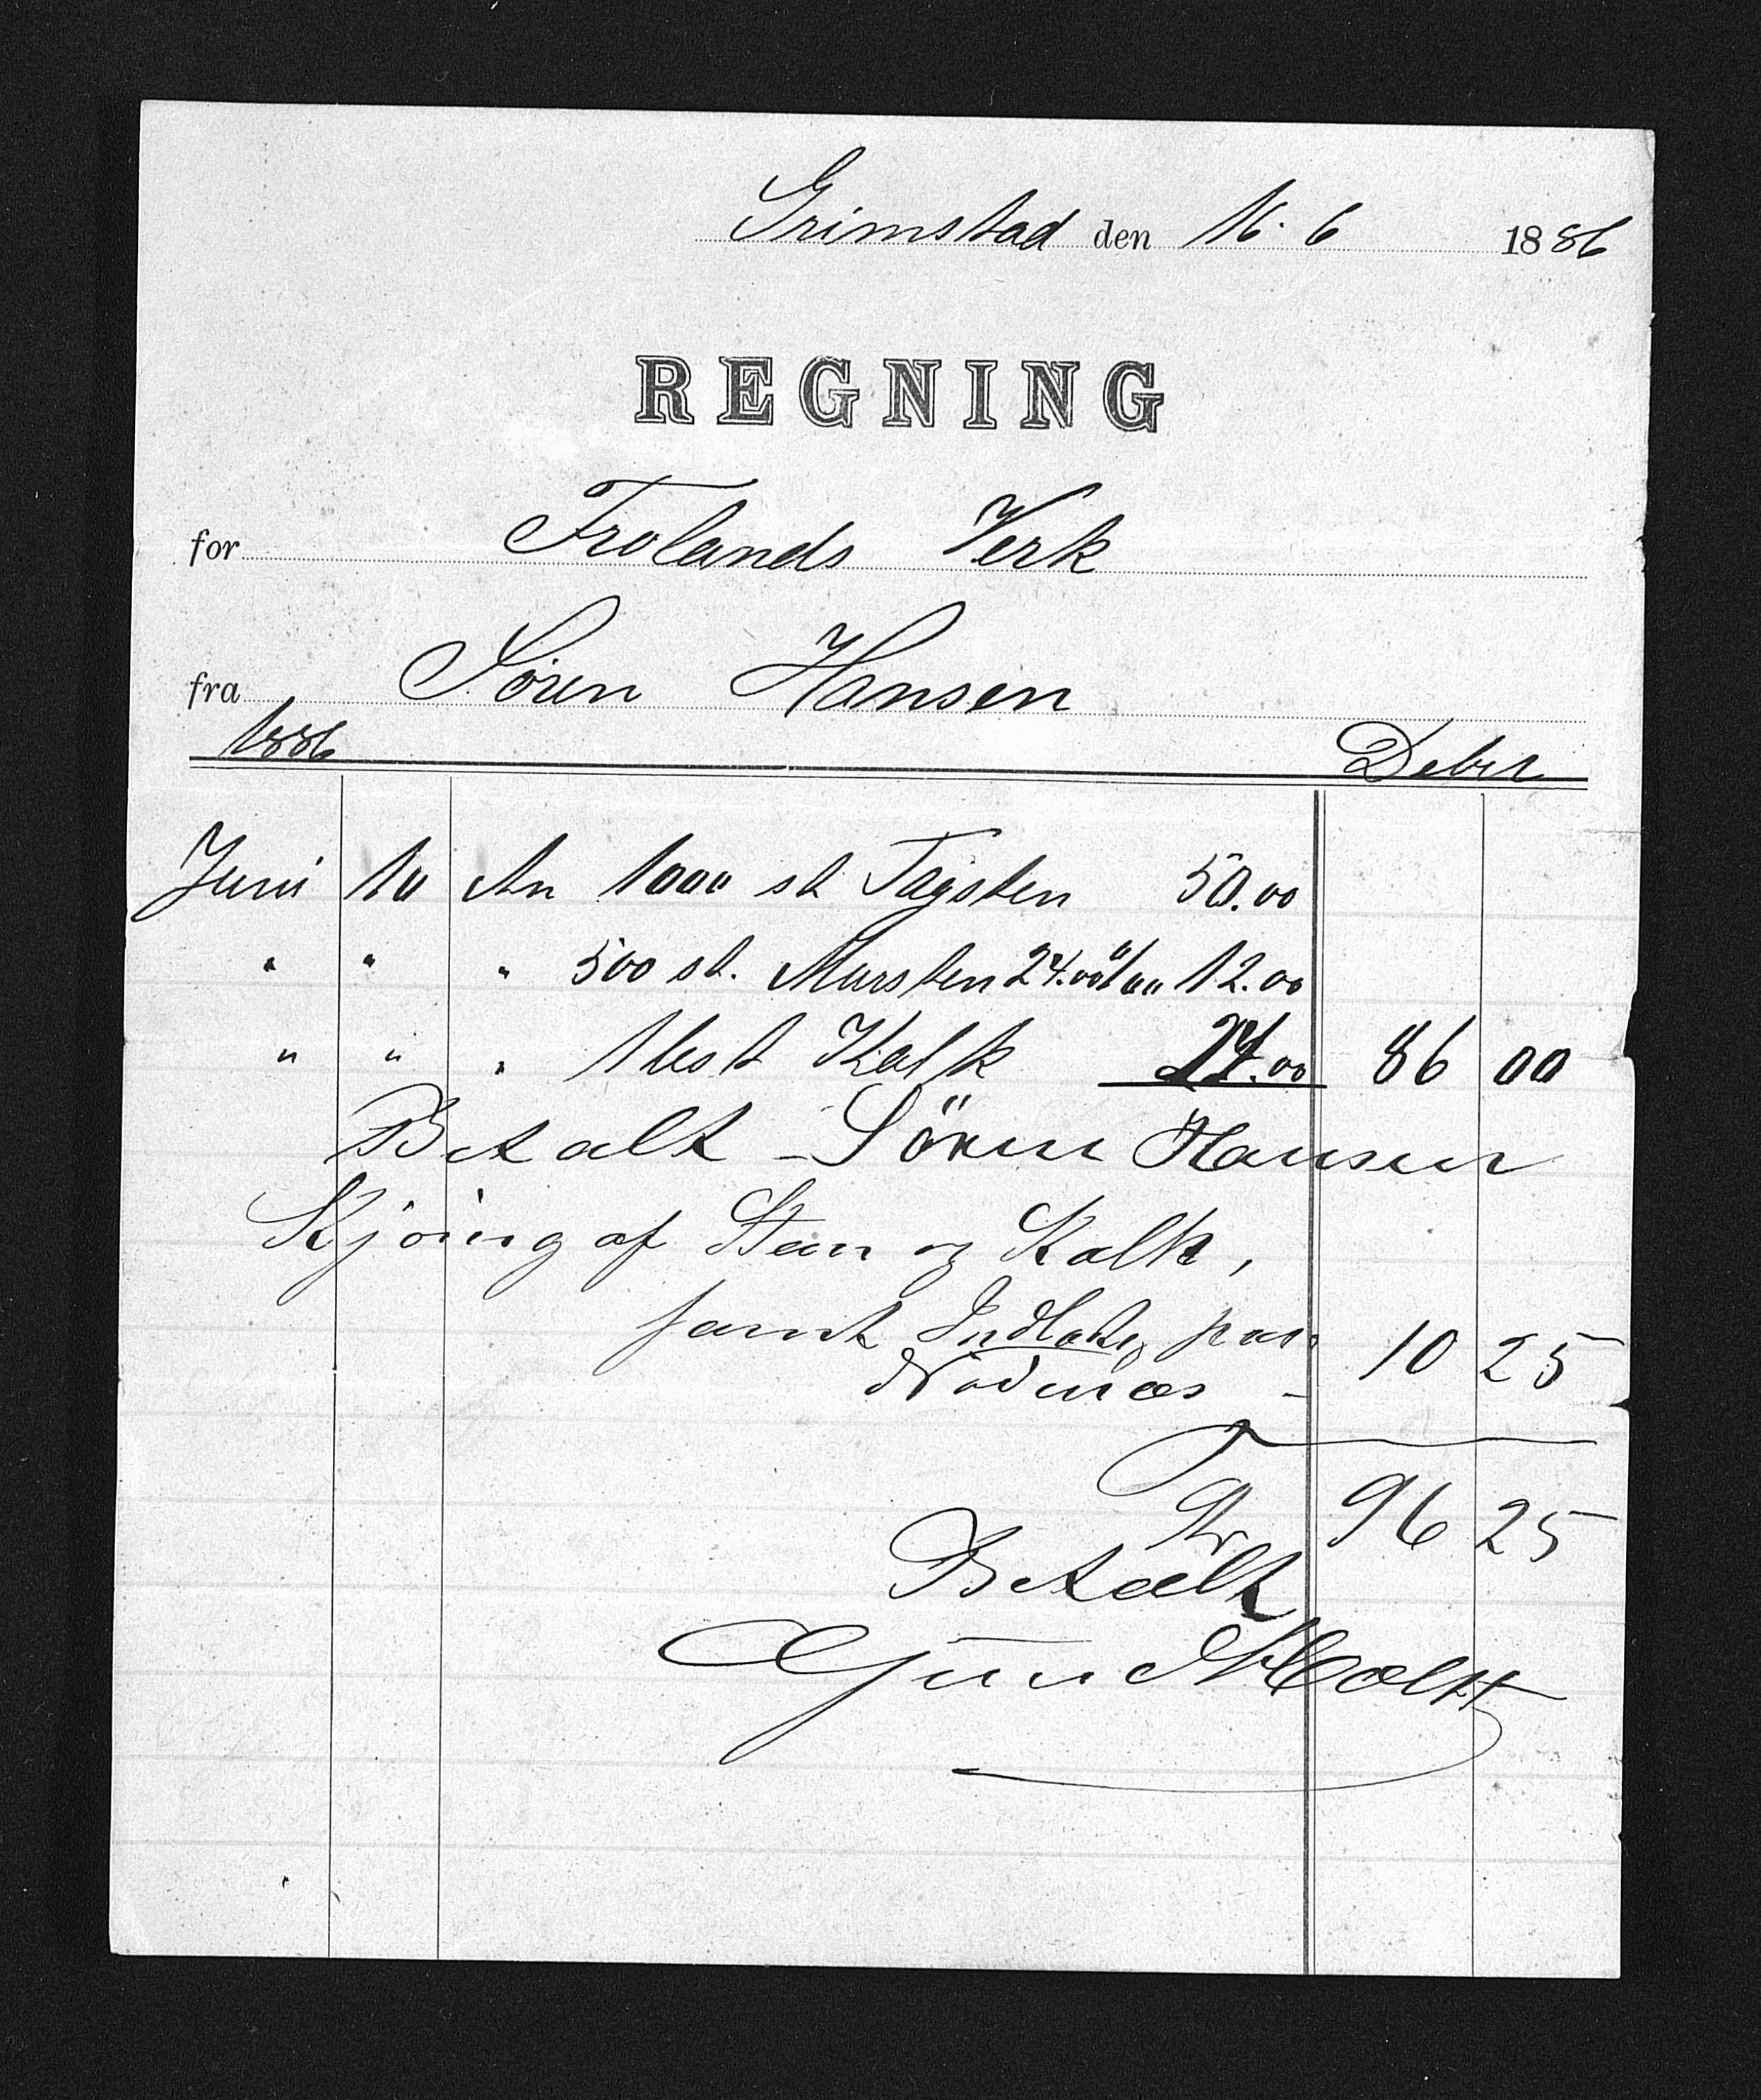 Grimstad den 16. 6 1886
REGNING
for Frolands Verk
fra Sören Hansen
1886 Debet
Juni 10 An 1000 st Tagsten 50.00
" " " 500 st. Mursten 24.00 12.00
" " " 1 Lest Kalk 24.00 86 00
Betalt - Sören Hansen
Kjöring af Sten og Kalk,
samt paa 10 25
Nödenæs -
Kr 96 25
Betalt